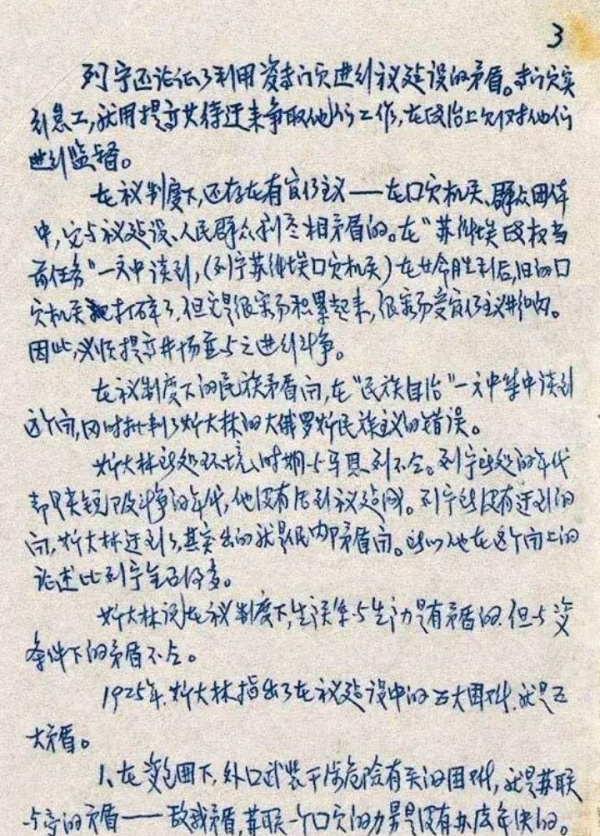 3
列宁还论证了利用资专门家进行社议建设的矛盾。专门家实
行怠工,就用提高其待迂来争取他们工作,在政治上又对他们
进行监督。
在社议制度下,还存在有官僚主义——在口家机关、群众团体
中,它与社议建设、人民群众利益相矛盾的。在"苏维埃政权当
前任务"一文中谈到,(列宁苏维埃口家机关)在革命胜利后,旧的口
家机关 打碎了,但它是很容易积累起来,很容易受官僚主义
因此,必须提高 与之进行斗争。
在社议制度下的民族矛盾问,在"民族自治"一文中集中谈到
这个问,同时批判了斯大林的大俄罗斯民族主义的错误。
斯大林所处环境、时期与马恩列不仝。列宁所处的年代
是阶级斗争的年代,他没有活到社议建成。列宁所没有迂到的
问,斯大林迂到了,其突出的就是人民内部矛盾问。所以他在这个问上的
论述比列宁 得多。
斯大林说,在社议制度下,生活关系与生力是有矛盾的,但与资义
条件下的矛盾不仝。
1925年,斯大林指出了在社议建设中的五大困难,就是五
大矛盾。
1、在资包围下,外口武装干涉危险有关的困难,就是苏联
与资的矛盾——敌我矛盾,苏联一个口家的力量是没有办法解决的。